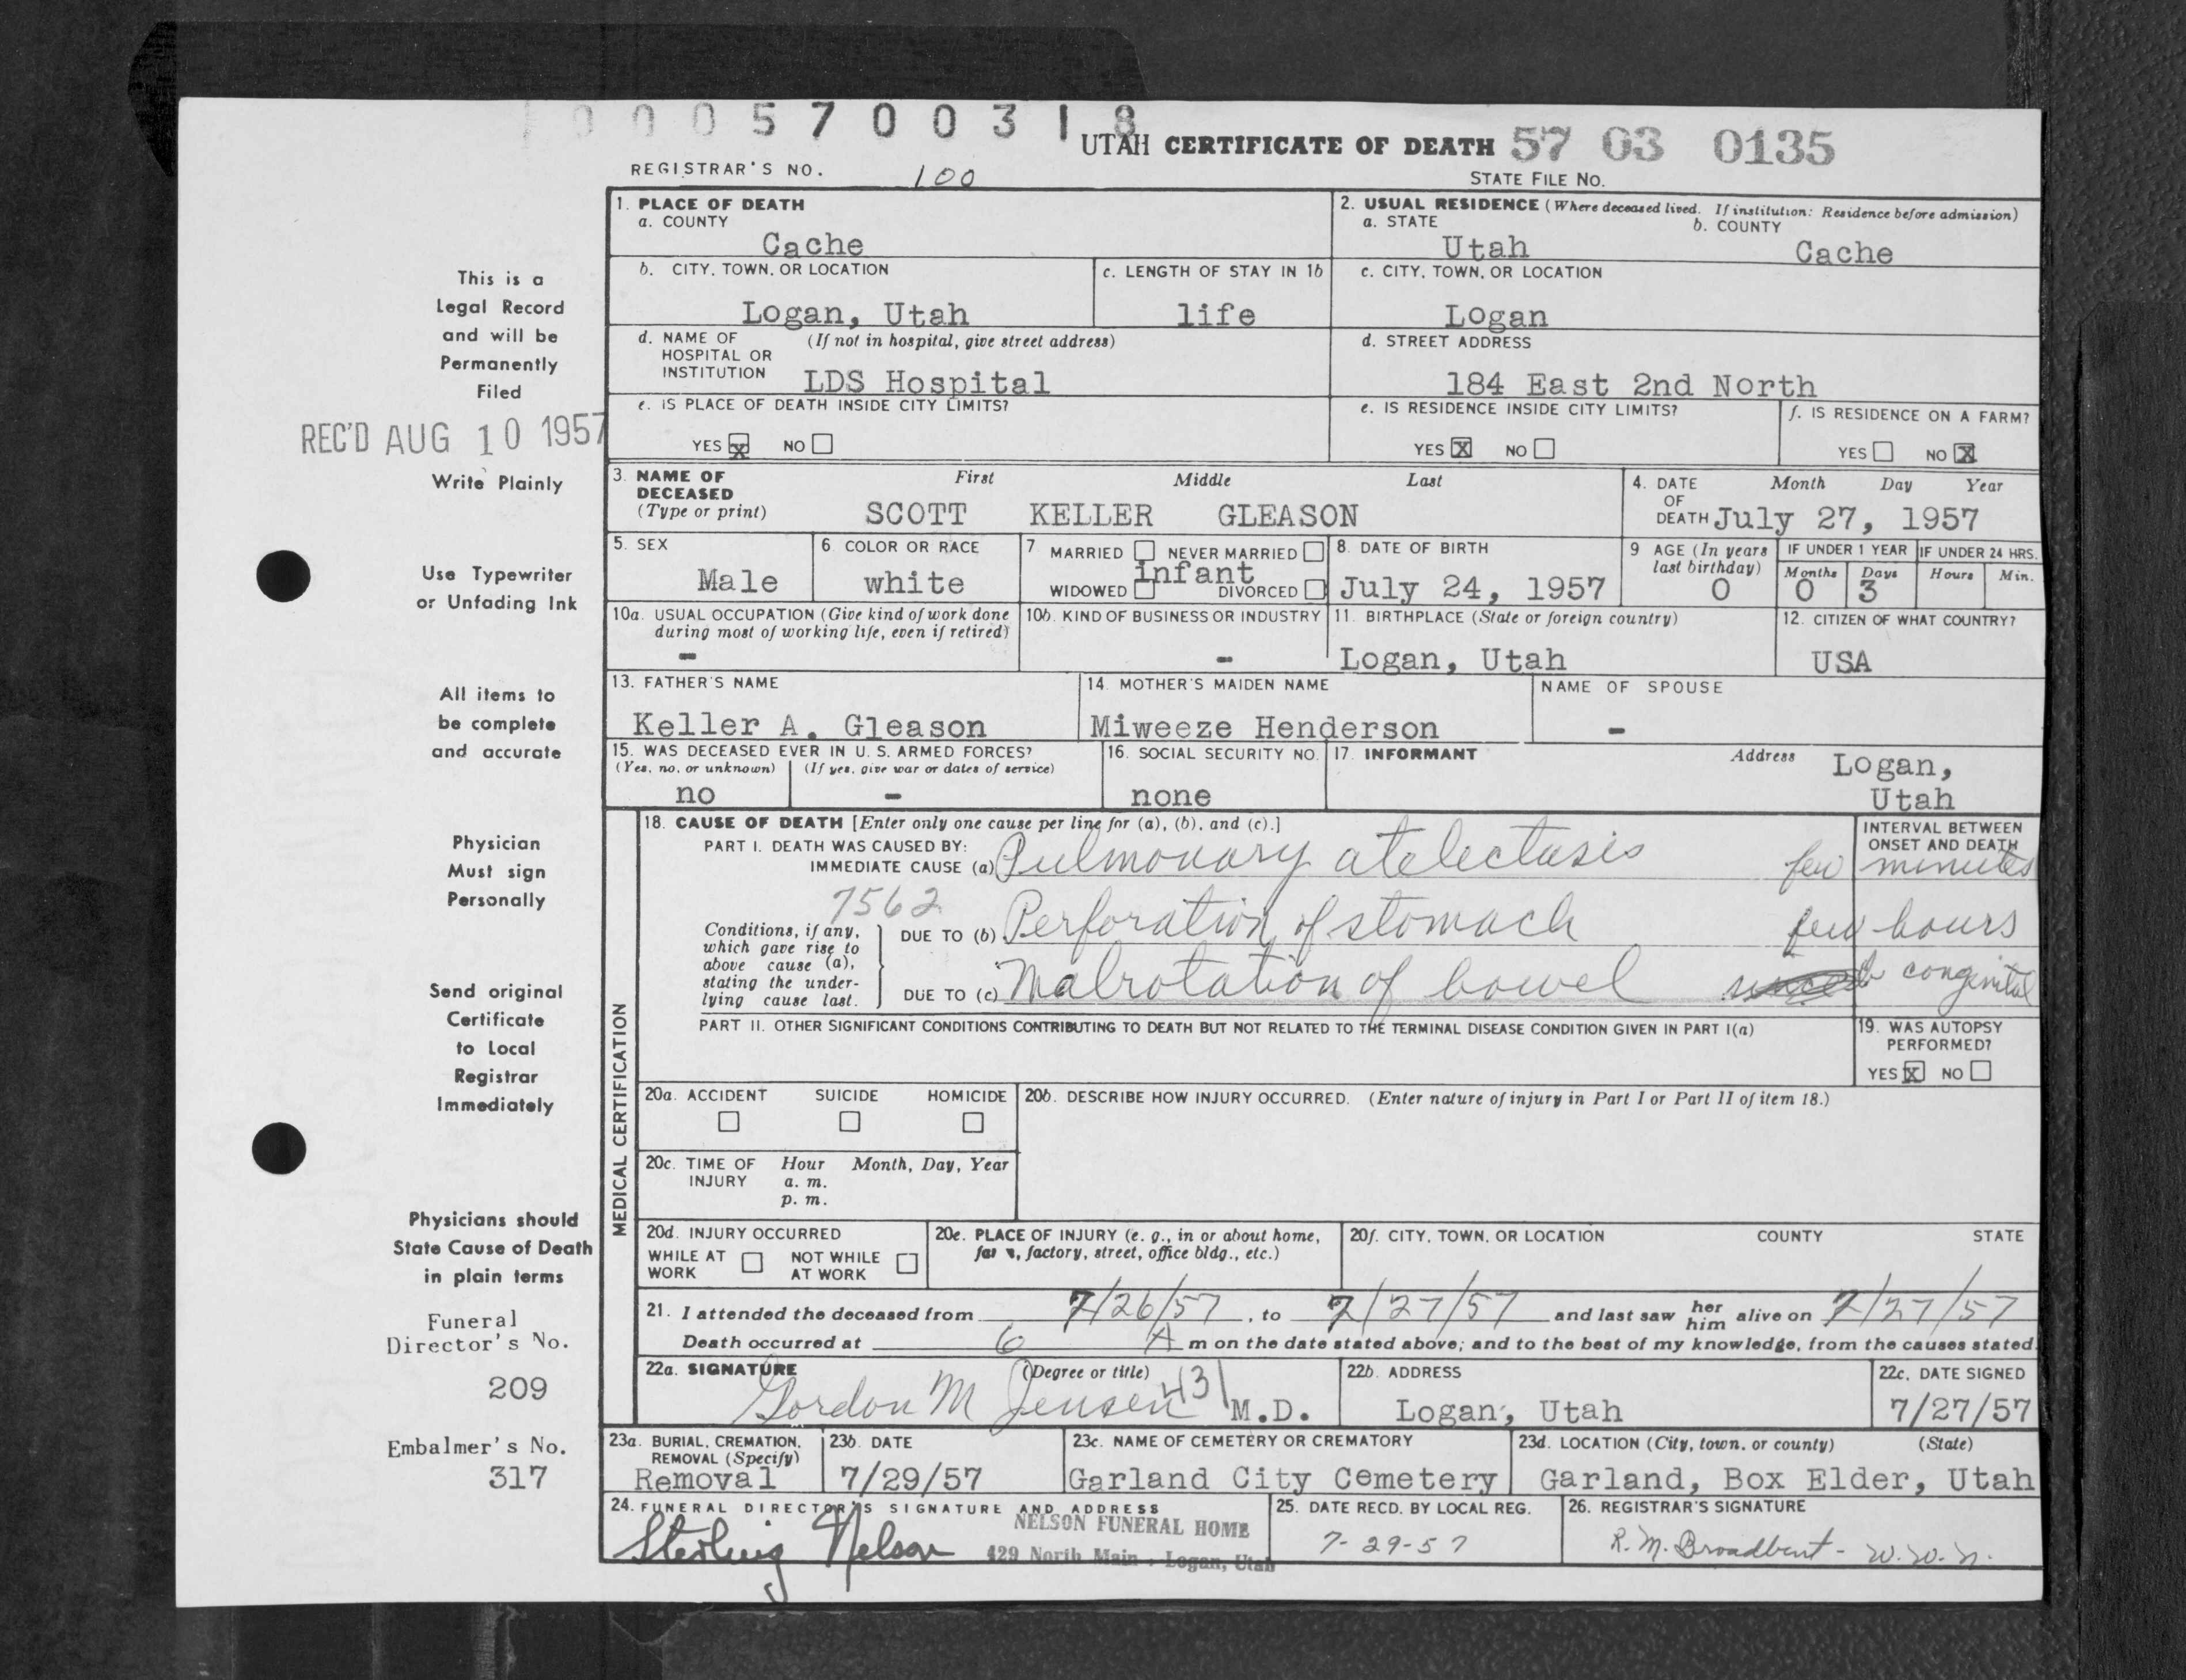 10005700318
UTAH CERTIFICATE OF DEATH 57 03 0135
REGISTRAR'S NO. 100
STATE FILE NO.
1. PLACE OF DEATH
a. COUNTY
Cache
2. USUAL RESIDENCE (Where deceased lived. If institution: Residence before admission)
a. STATE
Utah
b. COUNTY
Cache
b. CITY, TOWN, OR LOCATION
Logan, Utah
c. LENGTH OF STAY IN 1b
life
c. CITY, TOWN, OR LOCATION
Logan
d. NAME OF HOSPITAL OR INSTITUTION (If not in hospital, give street address)
LDS Hospital
d. STREET ADDRESS
184 East 2nd North
e. IS PLACE OF DEATH INSIDE CITY LIMITS?
YES X NO
e. IS RESIDENCE INSIDE CITY LIMITS?
YES X NO
f. IS RESIDENCE ON A FARM?
YES NO X
3. NAME OF DECEASED (Type or print)
First Middle Last
SCOTT KELLER GLEASON
4. DATE OF DEATH
Month Day Year
July 27, 1957
5. SEX
Male
6. COLOR OR RACE
white
7. MARRIED NEVER MARRIED
infant
WIDOWED DIVORCED
8. DATE OF BIRTH
July 24, 1957
9. AGE (In years last birthday)
0
IF UNDER 1 YEAR
Months Days
0 3
IF UNDER 24 HRS.
Hours Min.
10a. USUAL OCCUPATION (Give kind of work done during most of working life, even if retired)
-
10b. KIND OF BUSINESS OR INDUSTRY
-
11. BIRTHPLACE (State or foreign country)
Logan, Utah
12. CITIZEN OF WHAT COUNTRY?
USA
13. FATHER'S NAME
Keller A. Gleason
14. MOTHER'S MAIDEN NAME
Miweeze Henderson
NAME OF SPOUSE
-
15. WAS DECEASED EVER IN U. S. ARMED FORCES?
(Yes, no, or unknown) (If yes, give war or dates of service)
no -
16. SOCIAL SECURITY NO.
none
17. INFORMANT
Address Logan,
Utah
MEDICAL CERTIFICATION
18. CAUSE OF DEATH [Enter only one cause per line for (a), (b), and (c).]
INTERVAL BETWEEN ONSET AND DEATH
PART I. DEATH WAS CAUSED BY:
IMMEDIATE CAUSE (a) Pulmonary atelectasis few minutes
7562
Conditions, if any, which gave rise to above cause (a), stating the underlying cause last.
DUE TO (b) Perforation of stomach few hours
DUE TO (c) Malrotation of bowel congenital
PART II. OTHER SIGNIFICANT CONDITIONS CONTRIBUTING TO DEATH BUT NOT RELATED TO THE TERMINAL DISEASE CONDITION GIVEN IN PART I(a)
19. WAS AUTOPSY PERFORMED?
YES X NO
20a. ACCIDENT SUICIDE HOMICIDE
20b. DESCRIBE HOW INJURY OCCURRED. (Enter nature of injury in Part I or Part II of item 18.)
20c. TIME OF INJURY Hour Month, Day, Year
a. m.
p. m.
20d. INJURY OCCURRED
WHILE AT WORK NOT WHILE AT WORK
20e. PLACE OF INJURY (e. g., in or about home, farm, factory, street, office bldg., etc.)
20f. CITY, TOWN, OR LOCATION COUNTY STATE
21. I attended the deceased from 7/26/57, to 7/27/57 and last saw her him alive on 7/27/57
Death occurred at 6 A m on the date stated above; and to the best of my knowledge, from the causes stated.
22a. SIGNATURE (Degree or title)
Gordon M Jensen 431 M.D.
22b. ADDRESS
Logan, Utah
22c. DATE SIGNED
7/27/57
23a. BURIAL, CREMATION, REMOVAL (Specify)
Removal
23b. DATE
7/29/57
23c. NAME OF CEMETERY OR CREMATORY
Garland City Cemetery
23d. LOCATION (City, town, or county) (State)
Garland, Box Elder, Utah
24. FUNERAL DIRECTOR'S SIGNATURE AND ADDRESS
Sterling Nelson
NELSON FUNERAL HOME
429 North Main - Logan, Utah
25. DATE RECD. BY LOCAL REG.
7-29-57
26. REGISTRAR'S SIGNATURE
R. M. Broadbent - W. W. N.
This is a
Legal Record
and will be
Permanently
Filed
REC'D AUG 10 1957
Write Plainly
Use Typewriter
or Unfading Ink
All items to
be complete
and accurate
Physician
Must sign
Personally
Send original
Certificate
to Local
Registrar
Immediately
Physicians should
State Cause of Death
in plain terms
Funeral
Director's No.
209
Embalmer's No.
317